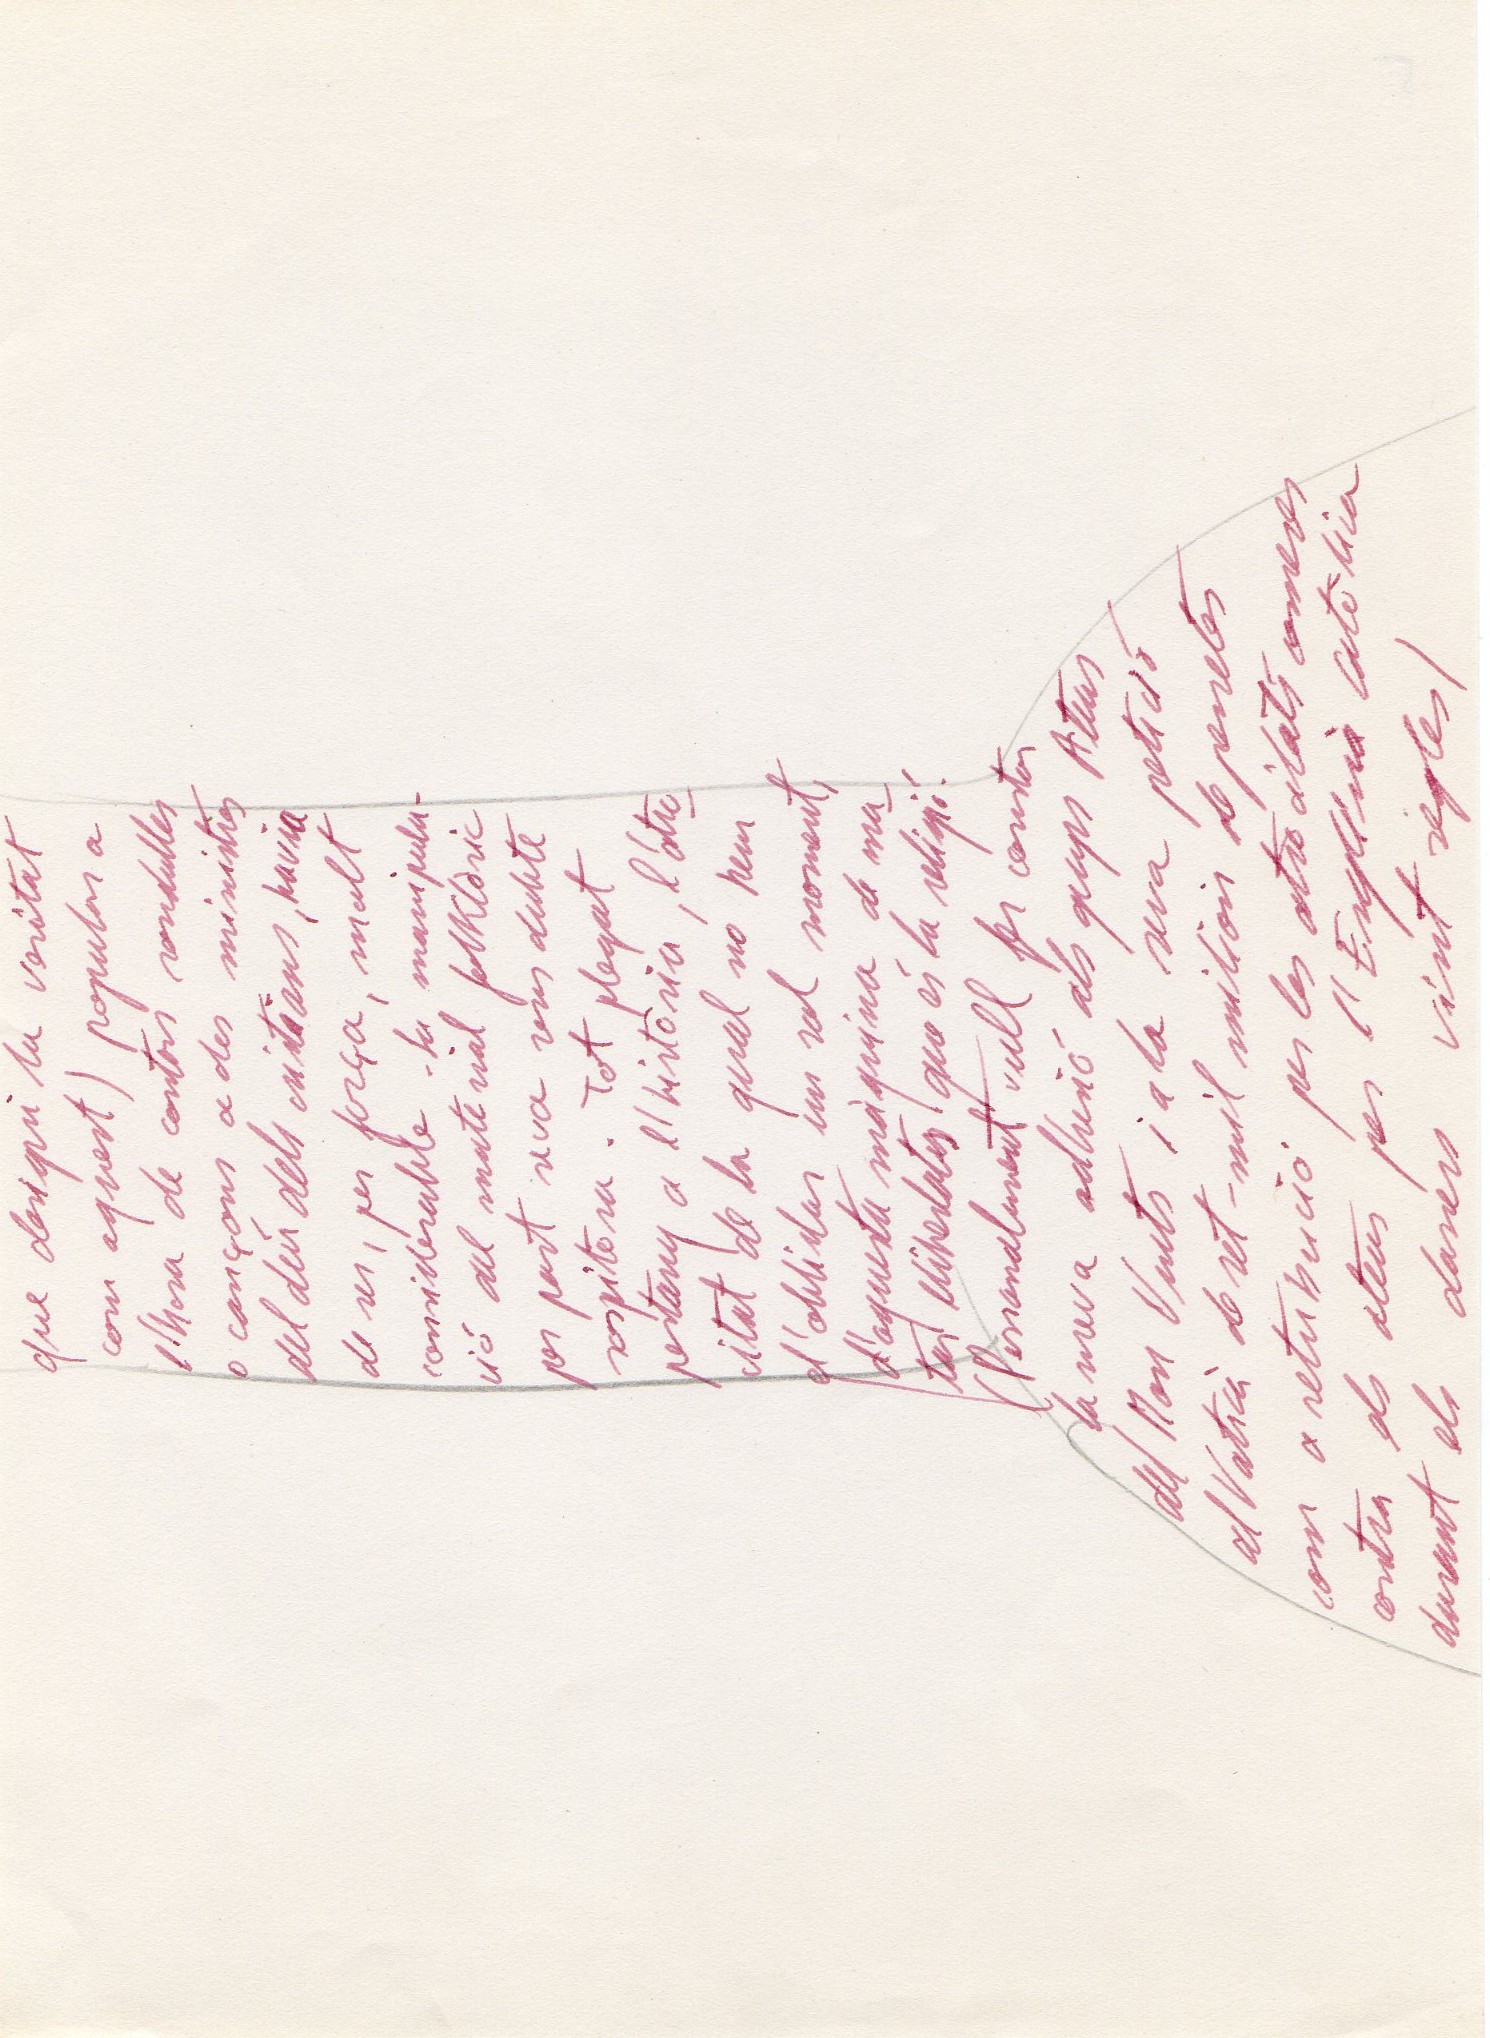 que desigui la veritat
com aquest) popular a
l'hora de contar rondalles
o cançons a des ministres
del deu dels cristians, havia
de ser, per força, molt
considerable - la manipula-
ció del material folklòric
per part seva sens dubte
sospitosa. Tot plegat
pertany a l'història, l'atro-
citat de la qual no hem
d'oblidar un sol moment,
d'aquesta màquina de ma-
tar llibertats que és la religió.
(Personalment vull fer constar
la meva adhesió als grups Ateus
del Mon Units i a la seva petició
al Vaticà de set-mil milions de pessetes
com a retribució per les atrocitats comeses
contra els ateus per l'Església catòlica
durant els darrers vint segles)